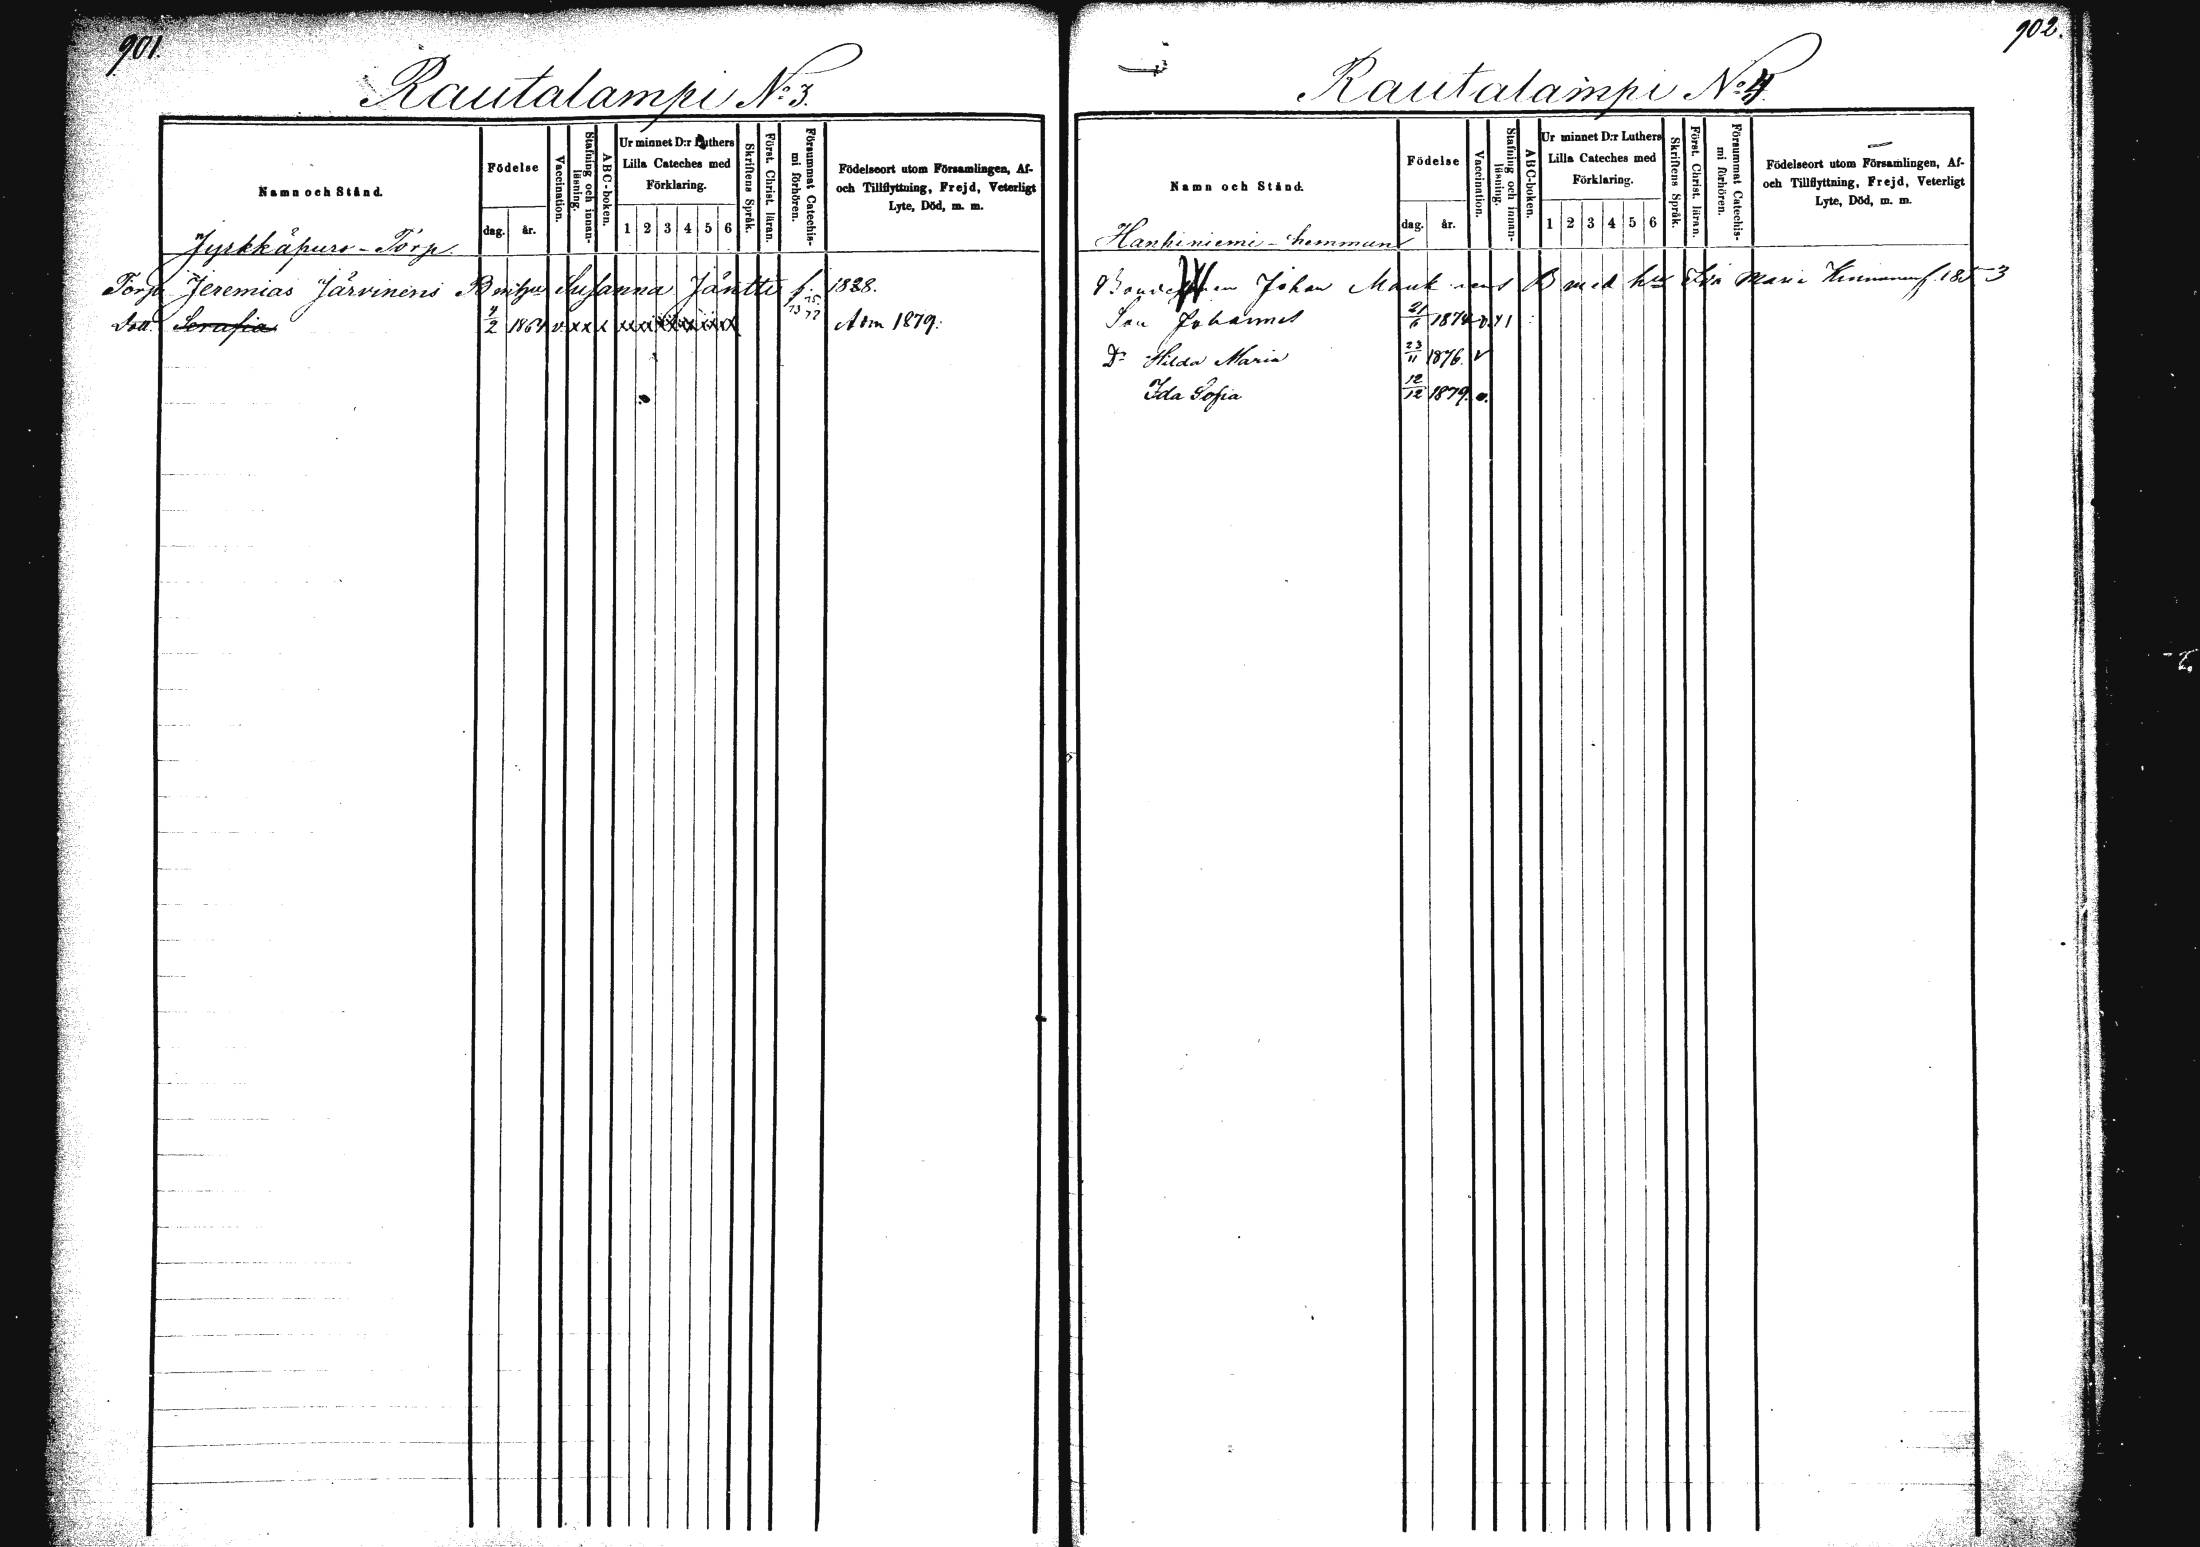 901.
Rautalampi No 3.
Namn och Stånd.
Födelse
dag.
år.
Vaccination.
Stafning och innanläsning.
ABC-boken.
Ur minnet D:r Luthers
Lilla Cateches med
Förklaring.
1 2 3 4 5 6
Skriftens Språk.
Först. Christ. läran.
Försummat Catechismi förhören.
Födelseort utom Församlingen, Af-
och Tillflyttning, Frejd, Veterligt
Lyte, Död, m. m.
Jyrkkäpuro-Torp
Torp. Jeremias Järvinens B m hu Susanna Jäntti f. 1828.
Dott. Serafia 4/2 1864 v. x x x x x x x x x x x Adm 1879.
902.
Rautalampi No 4.
Namn och Stånd.
Födelse
dag.
år.
Vaccination.
Stafning och innanläsning.
ABC-boken.
Ur minnet D:r Luthers
Lilla Cateches med
Förklaring.
1 2 3 4 5 6
Skriftens Språk.
Först. Christ. läran.
Försummat Catechismi förhören.
Födelseort utom Församlingen, Af-
och Tillflyttning, Frejd, Veterligt
Lyte, Död, m. m.
Hanhiniemi-hemman
Johan B med hu Maria f. 1853
Son Johannes 21/6 1874 v.
Dr Hilda Maria 23/11 1876. v
Ida Sofia 12/12 1879. v.